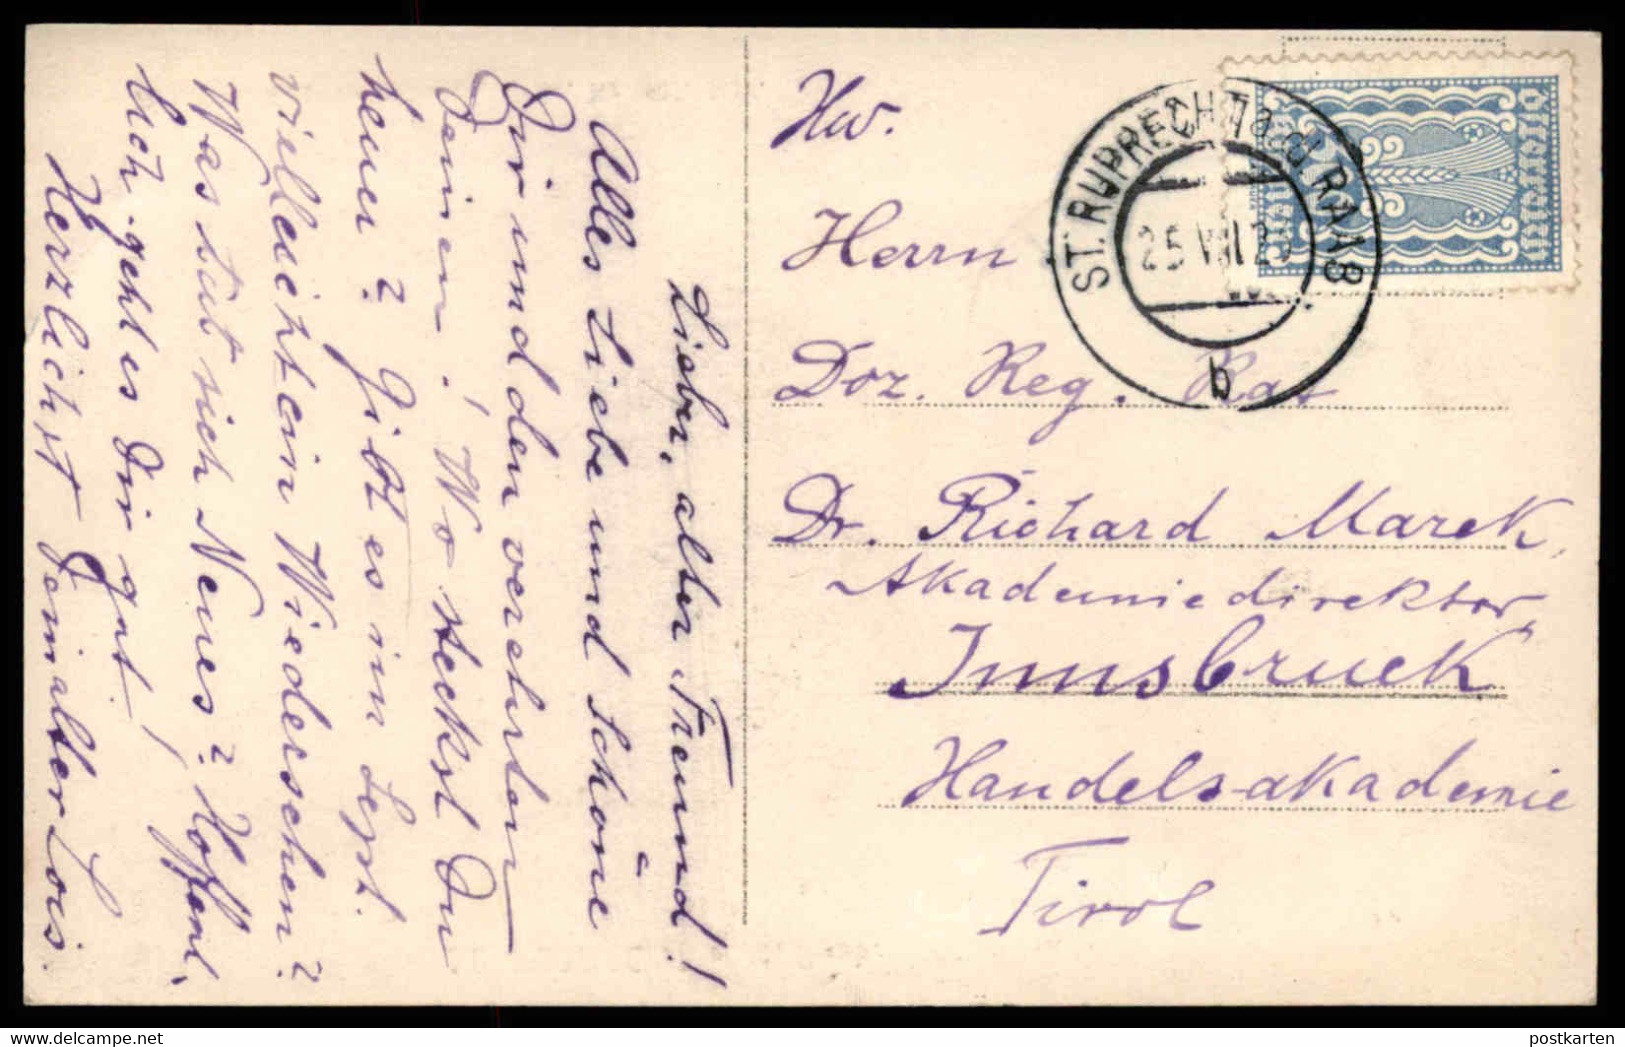 Lieber, alter Freund!
Alles Liebe und Schöne
Dir und den verehrten
Deinen! Wo steckst Du
heuer? Gibt es im Sept.
vielleicht ein Wiedersehen?
Was tut sich Neues? Hoffent-
lich geht es Dir gut!
Herzlichst Dein alter Lois.
Hw.
Herrn
Doz. Reg. Rat
Dr. Richard Marek,
Akademiedirektor
Innsbruck
Handelsakademie
Tirol
ST. RUPRECHT a.d. RAAB
25 VIII 2
b
postkarten